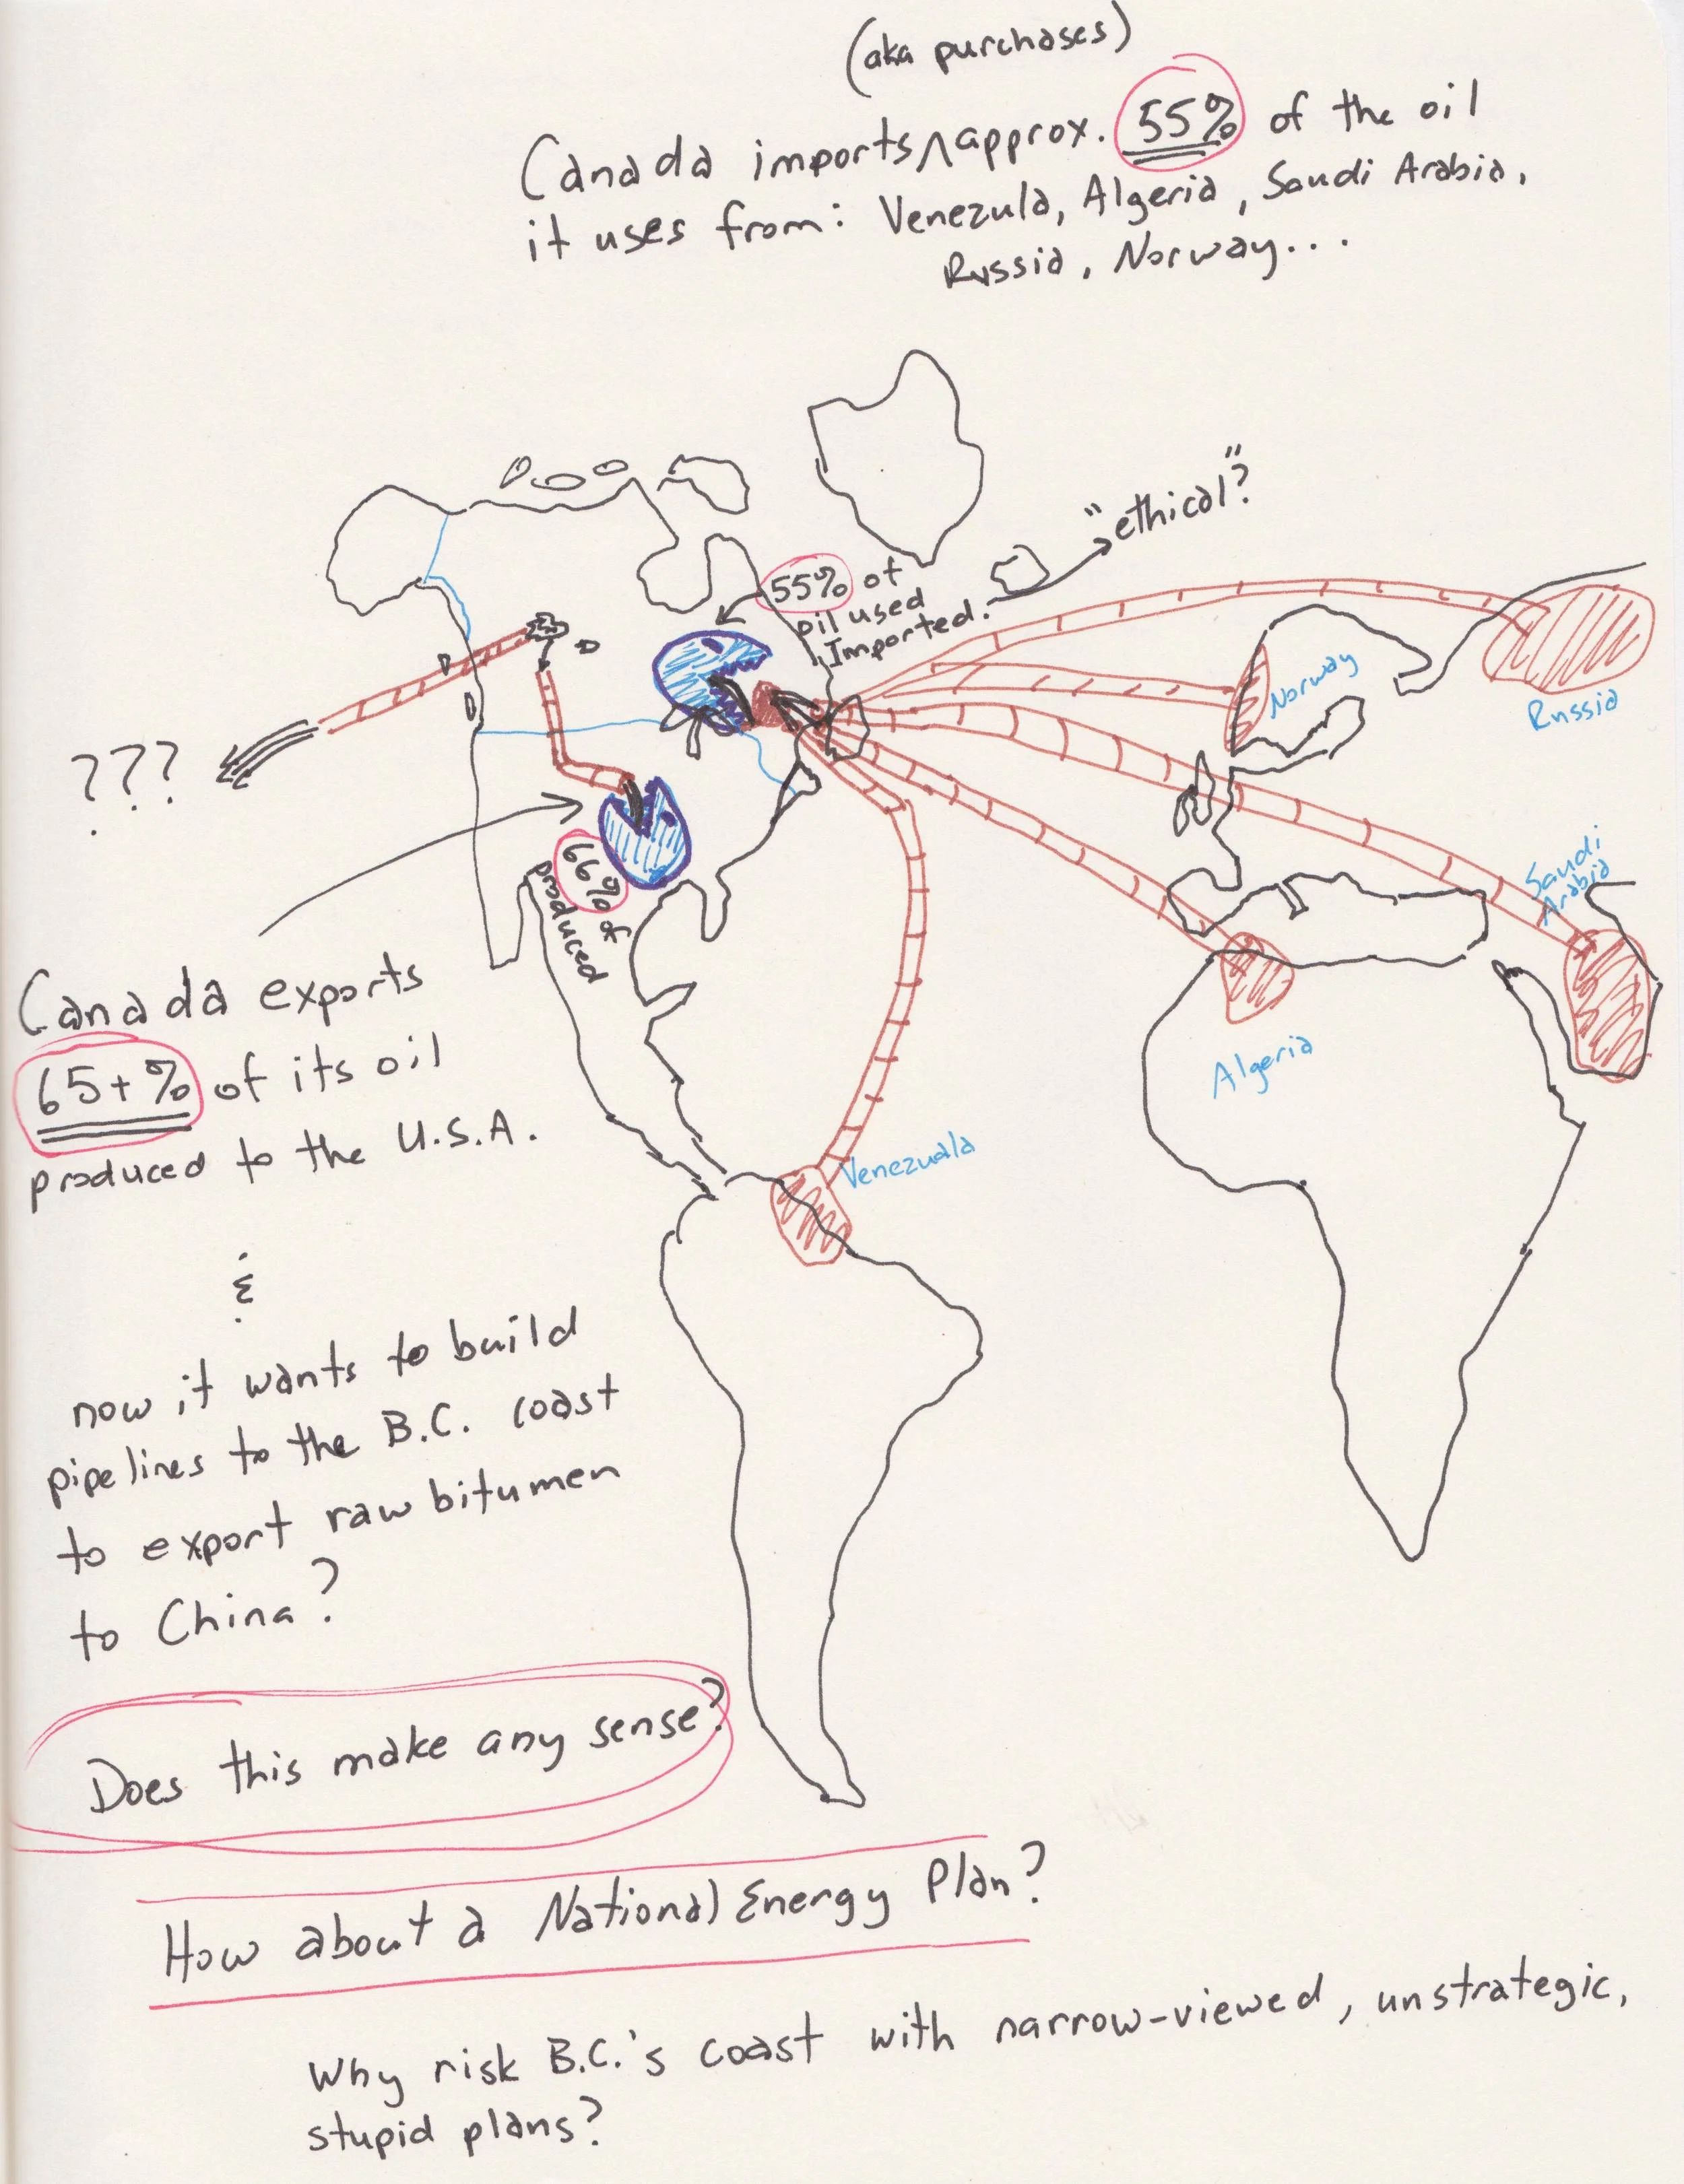 (aka purchases)
Canada imports ^ approx. 55% of the oil
it uses from: Venezula, Algeria, Saudi Arabia,
Russia, Norway...
"ethical"?
55% of
oil used
Imported.
Norway
Russia
???
66% of
produced
Saudi
Arabia
Canada exports
65+% of its oil
produced to the U.S.A.
Algeria
Venezuala
&
now it wants to build
pipelines to the B.C. coast
to export raw bitumen
to China?
Does this make any sense?
How about a National Energy Plan?
Why risk B.C.'s coast with narrow-viewed, unstrategic,
stupid plans?